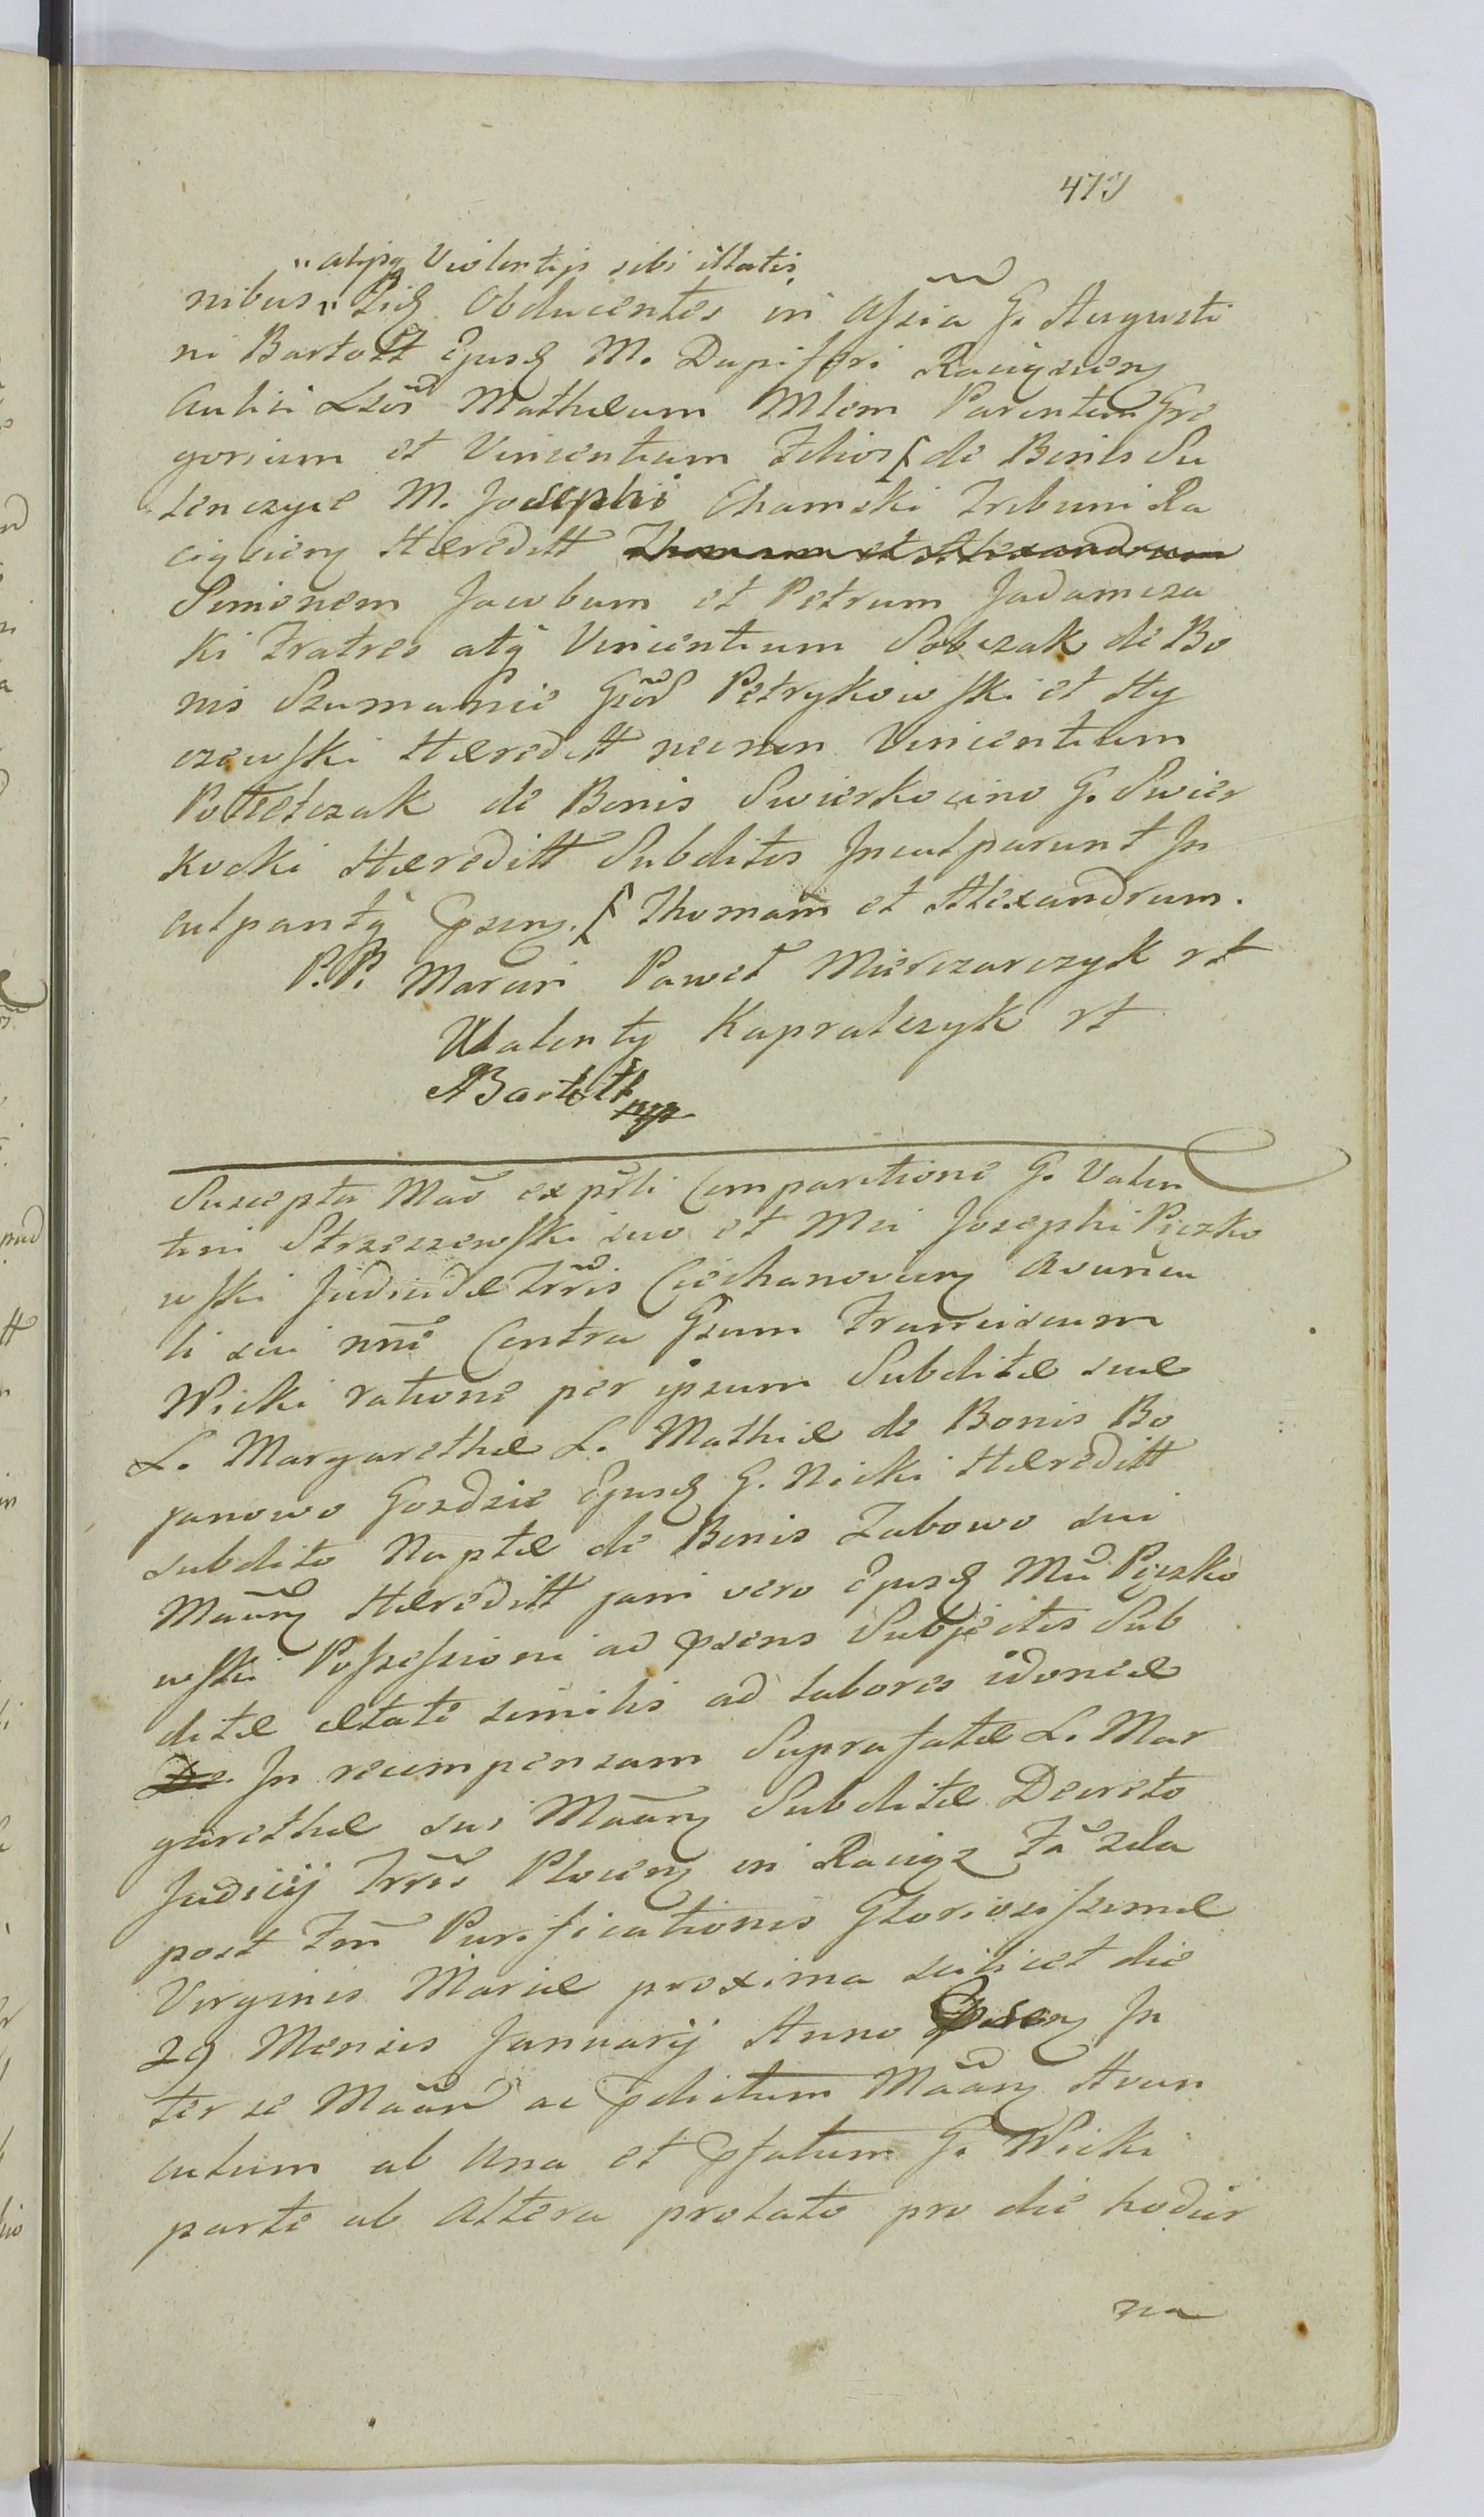 473
"atqꝫ Violentijs sibi illatis
nibus " Eiꝫ Obducentes in assia G. Augusti
ni Bartołt Ejusꝫ M. Dapiferi Raciązien
Aulici Matheum Mlem Parentem Gre
gorium et Vincentium Filios [ de Bonis Su
lenczyce M. Josephi Chamski Tribuni Ra
ciązien Hæreditt Thomam et Alexandrum
Simonem Jacobum et Petrum Jadamcza
ki Fratres atq Vincentium Sobczak de Bo
nis Szumanie Gsõd Petrykowski et Hy
czewski Hæreditt necnon Vincentium
de Bonis Swierkocino G. Swier
kocki Hæreditt Subditos Inculparunt In
culpantq [ Thomam et Alexandrum.
P.P. Marcin Paweł Mierczarczyk rt
Walenty Kapralczyk rt
ABartołt mp
Suscepta Mão ex Comparitione G. Valen
tini Strzeszewski suo et Mci Josephi Pęczko
wski Judicis Trris Ciechanovien Avuncu
li sui nñe Contra Gsum Franciscum
Wicki ratione per ipsum Subditæ suæ
L. Margarethæ L. Mathiæ de Bonis Bo
janowo Gozdzie Ejusꝫ G. Wicki Hæreditt
subdito Nuptæ de Bonis Zabowo sui
Mãan Hæreditt jam vero Ejusꝫ Mci Pęczko
wski Possessioni ad psens Subjectis Sub
ditæ ætate similis ad labores idoneæ
De In recompensam Suprafatæ L. Mar
garethæ sui Mãan Subditæ Decreto
Judicij Trris Plocen in Raciąz Fã 2da
post Fm Purificationis Gloriosissimæ
Virginis Mariæ proxima scilicet die
29 Mensis Januarij Anno psen In
ter se Mãan ac pdictum Mãan Avun
culum ab Una et pfatum G. Wicki
parte ab Altera prolato pro die hodier
na